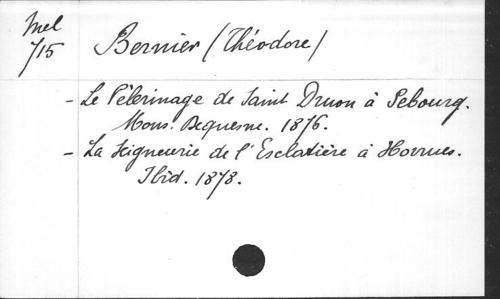 Mel
715
Bernier (Théodore)
- Le Pèlerinage de Saint Druon à Sebourg.
Mons. Dequesne. 1876.
- La Seigneurie de l'Esclatière à Horrues.
Ibid. 1878.